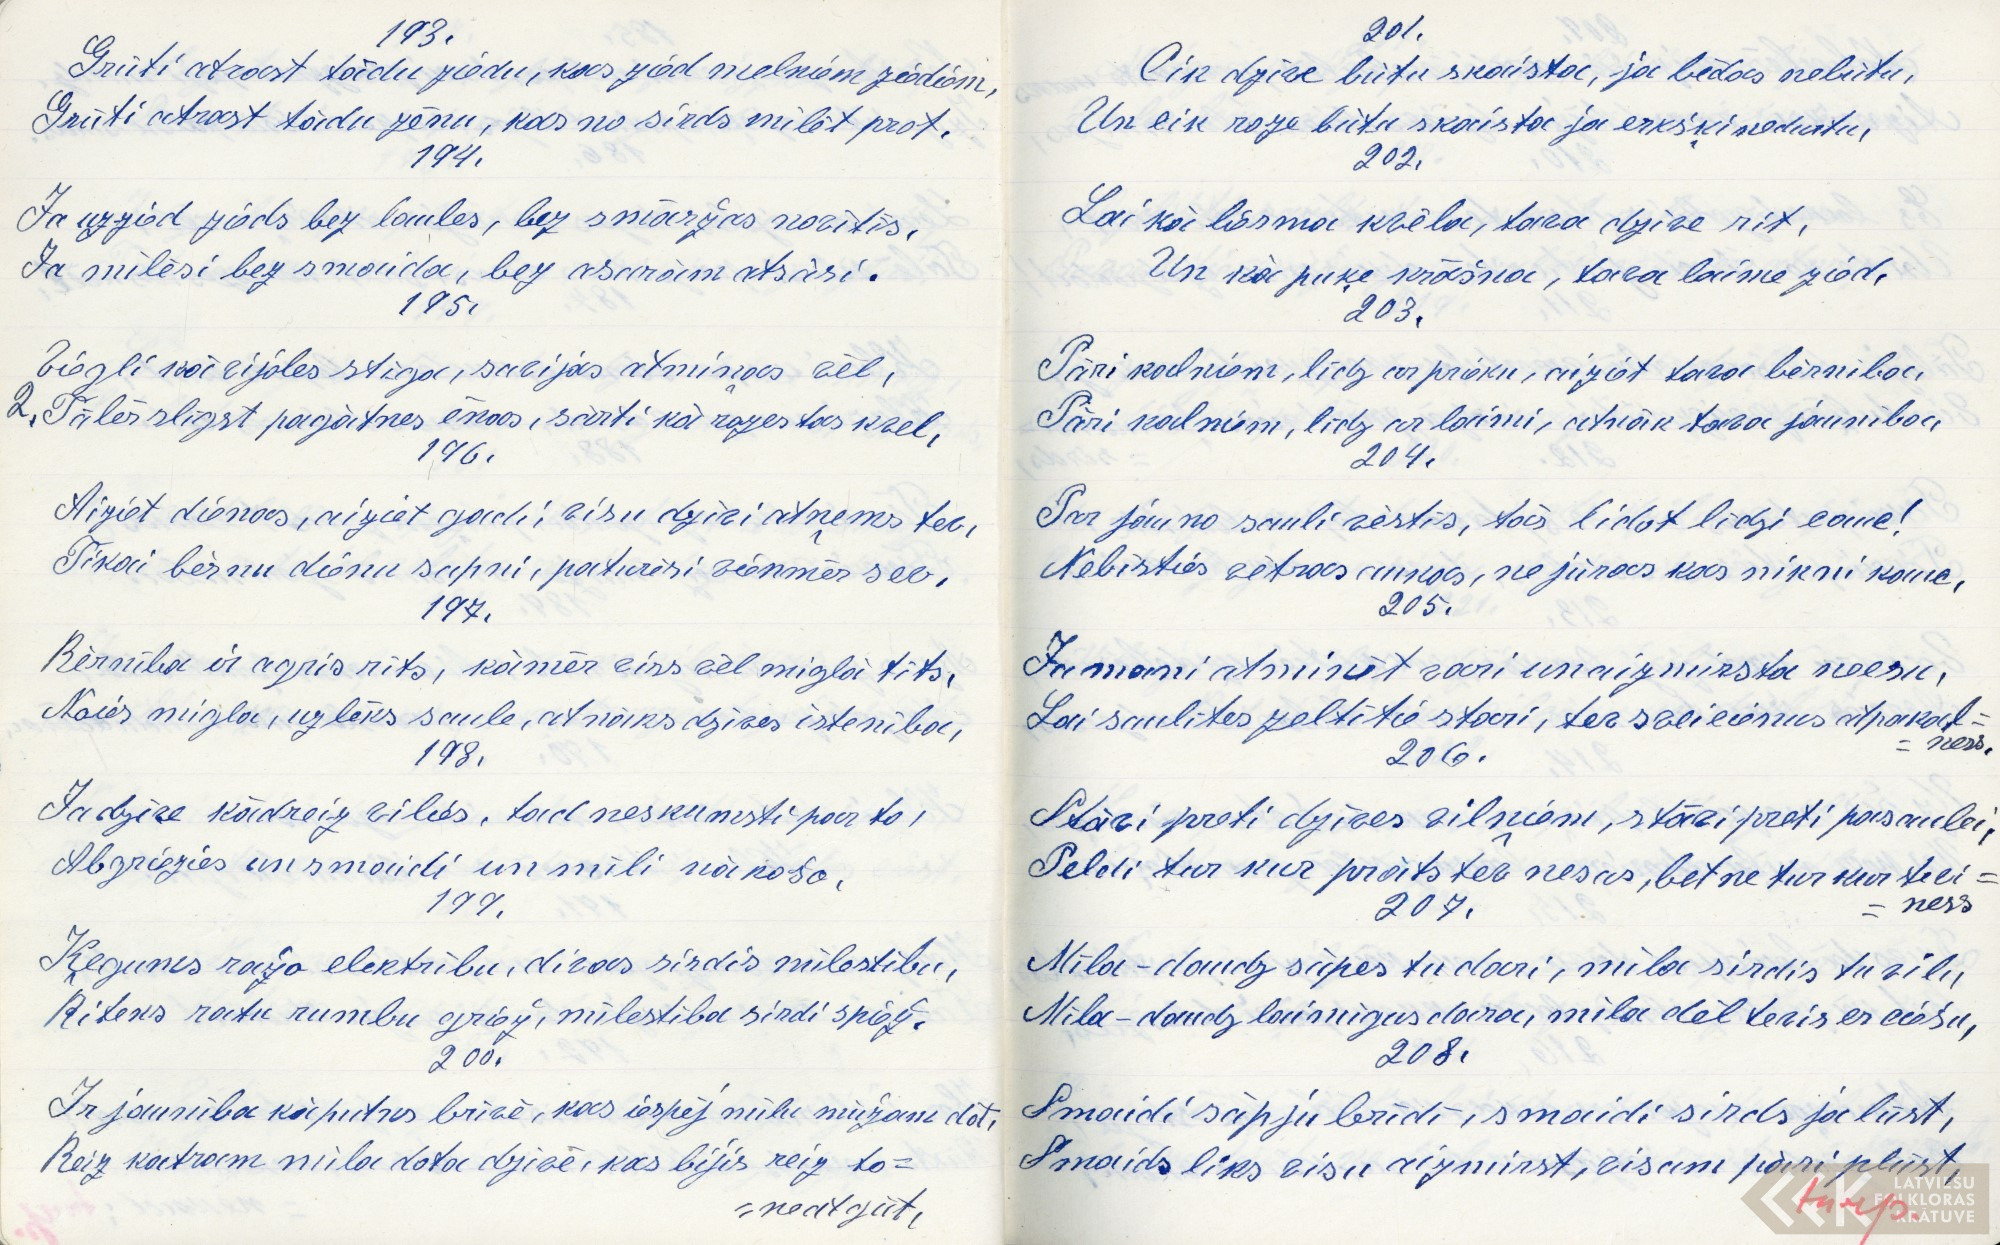 193.
Grūti atrast tādu ziedu, kas zied melniem ziediem,
Grūti atrast tādu zēnu, kas no sirds mīlēt prot.
194.
Ja uzzied zieds bez saules, bez smaržas novītīs,
Ja mīlēsi bez smaida, bez asarām atsāsi.
195.
Viegli kā vijoles stīga, savijas atmiņas vēl,
2. Tālēs slīgst pagātnes ēnas, sārti kā rozes tas kvēl,
196.
Aiziet dienas, aiziet gadi, visu dzīvi atņems tev,
Tikai bērnu dienu sapni, paturēsi vienmēr sev.
197.
Bērnība ir agrs rīts, kāmēr viss vēl miglā tīts,
Nāies migla, uzlēks saule, atnāks dzīves īstenība,
198.
Ja dzīve kādreiz vilies, tad neskumsti par to,
Abgriezies un smaidi un mīli nākošo.
199.
Ķegums ražo elektrību, divas sirdis mīlestību,
Ritenis ratu rumbu griež, mīlestība sirdi spiež.
200.
Ir jaunība kā putns brīvē, kas iespēj mīlu mūžam dot,
Reiz katram mīla dota dzīvē, kas bijis reiz to=
=neatgūt,
201.
Cik dzīve būtu skaista, ja bēdas nebūtu,
Un cik roze būtu skaista ja erkšķi nedurtu,
202.
Lai kā liesma kvēla, tava dzīve rit,
Un kā puķe krāšņa, tava laime zied,
203.
Pāri kalniem, līdz ar prieku, aiziet tava bērnība,
Pāri kalniem, līdz ar laimi, atnāk tava jaunība,
204.
Par jauno sauli vēstis, tās lidot līdzi caue!
Nebīsties vētras aukas, ne jūras kas nikni kaue,
205.
Ja mani atminēt vari unaizmirsta neesu,
Lai saulītes zeltītie stari, tev sveicienus atpakaļ=
=ness.
206.
Stāvi preti dzīves vilņiem, stāvi preti pasaulei,
Peldi tur kur prāts tev nesas, bet ne tur kur tevi=
=ness
207.
Mīla - daudz sāpes tu dari, mīla sirdis tu vilu,
Mīla - daudz laimīgus dara, mīla dēļ tevis es ciešu,
208.
Smaidi sāpju brīdī, smaidi sirds ja lūst,
Smaids liks visu aizmirst, visam pāri plūst,
turp.
LATVIEŠU
FOLKLORAS
KRĀTUVE